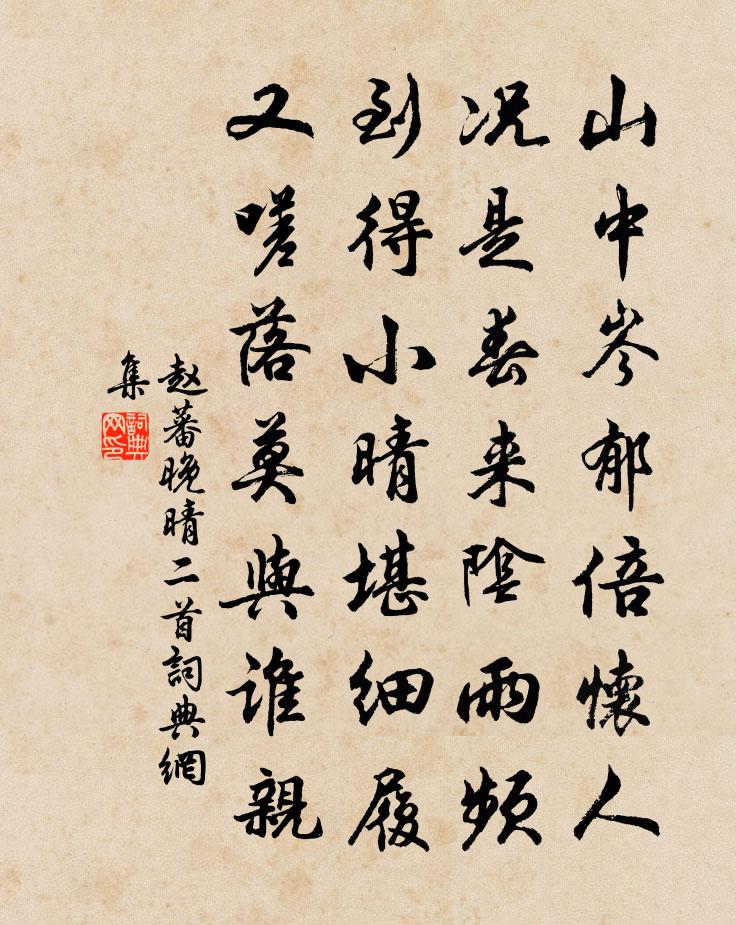 山中岑郁倍懷人
况是春来陰雨頻
到得小晴堪细履
又嗟落莫與谁親
赵蕃晚晴二首詞典網
集
詞典
网印